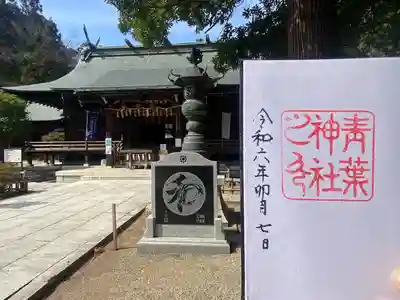 青葉
神社
令和六年卯月七日